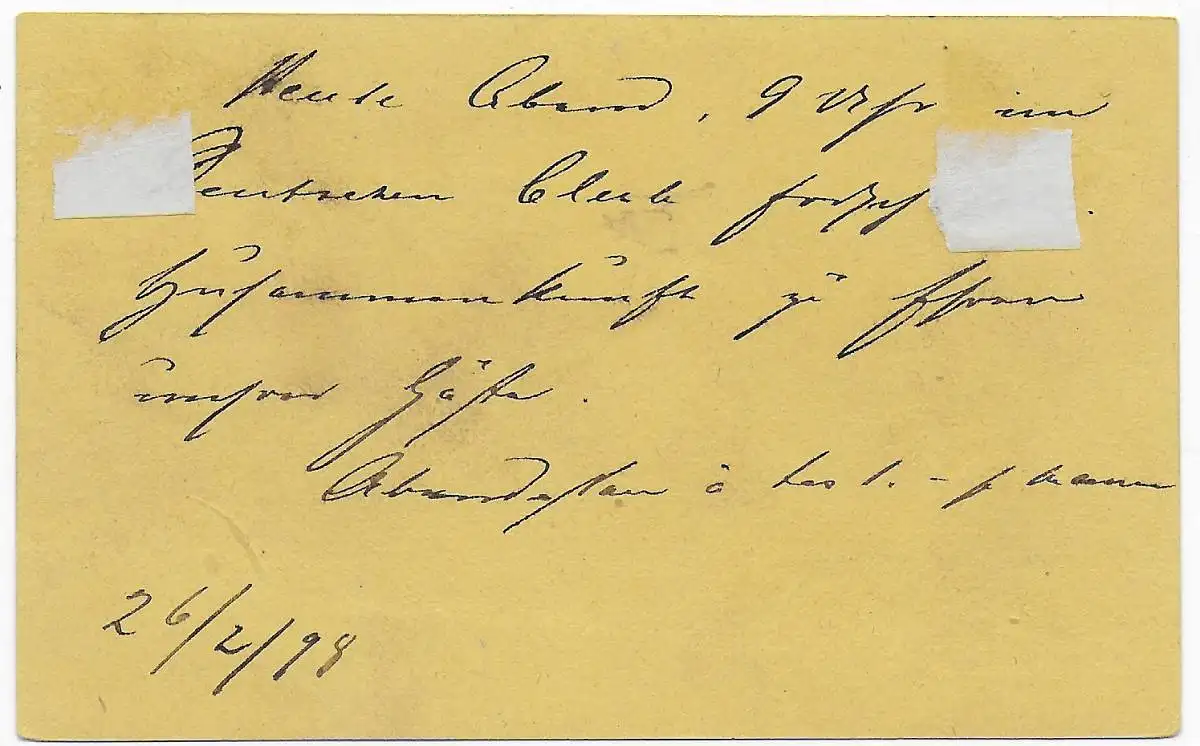 Heute Abend, 9 Uhr im
Deutschen Club
Zusammenkunft zu Ehren
unserer Gäste.
Abendessen à
26/2/98